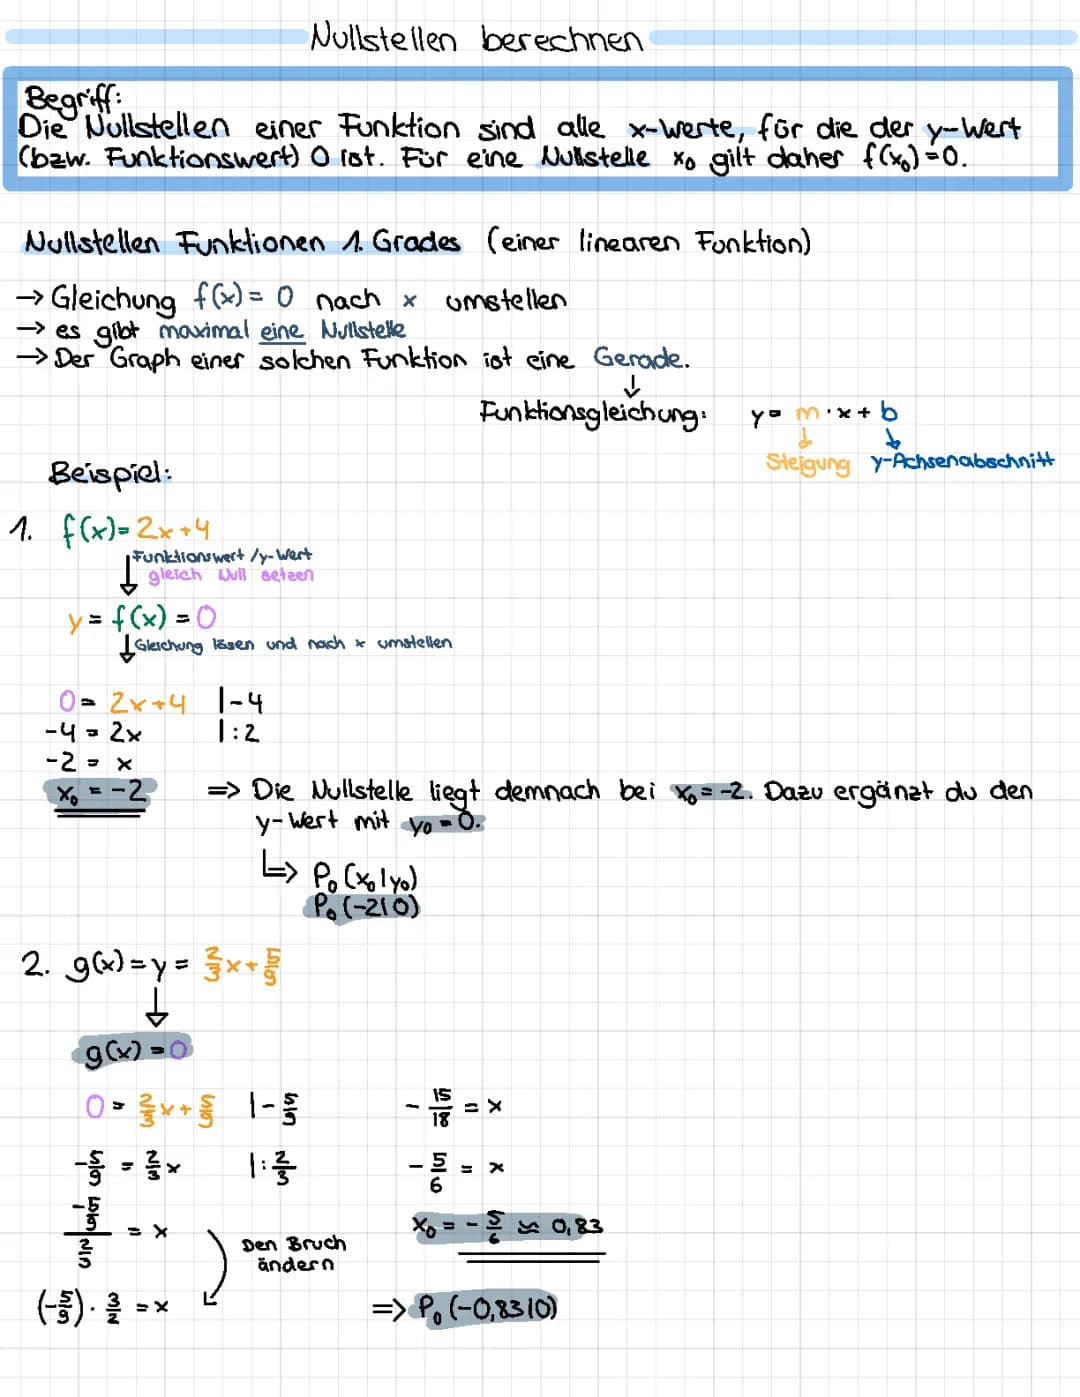 Nullstellen berechnen
Begriff:
Die Nullstellen einer Funktion sind alle x-Werte, für die der y-Wert
(bzw. Funktionswert) 0 ist. Für eine Nullstelle x₀ gilt daher f(x₀)=0.
Nullstellen Funktionen 1. Grades (einer linearen Funktion)
→ Gleichung f(x) = 0 nach x umstellen
→ es gibt maximal eine Nullstelle
→ Der Graph einer solchen Funktion ist eine Gerade.
↓
Funktionsgleichung: y = m · x + b
↓ ↓
Steigung y-Achsenabschnitt
Beispiel:
1. f(x) = 2x + 4
↓ Funktionswert / y-Wert
gleich Null setzen
y = f(x) = 0
↓ Gleichung lösen und nach x umstellen
0 = 2x + 4 | -4
-4 = 2x | : 2
-2 = x
x₀ = -2 => Die Nullstelle liegt demnach bei x₀ = -2. Dazu ergänzt du den
y-Wert mit y₀ = 0.
↳> P₀(x₀|y₀)
P₀(-2|0)
2. g(x) = y = 2/3 x + 5/9
↓
g(x) = 0
0 = 2/3 x + 5/9 | - 5/9
-5/9 = 2/3 x | : 2/3
(-5/9)/(2/3) = x
Den Bruch
ändern
(-5/9) · 3/2 = x
- 15/18 = x
- 5/6 = x
x₀ = - 5/6 ≈ 0,83
=> P₀(-0,83|0)